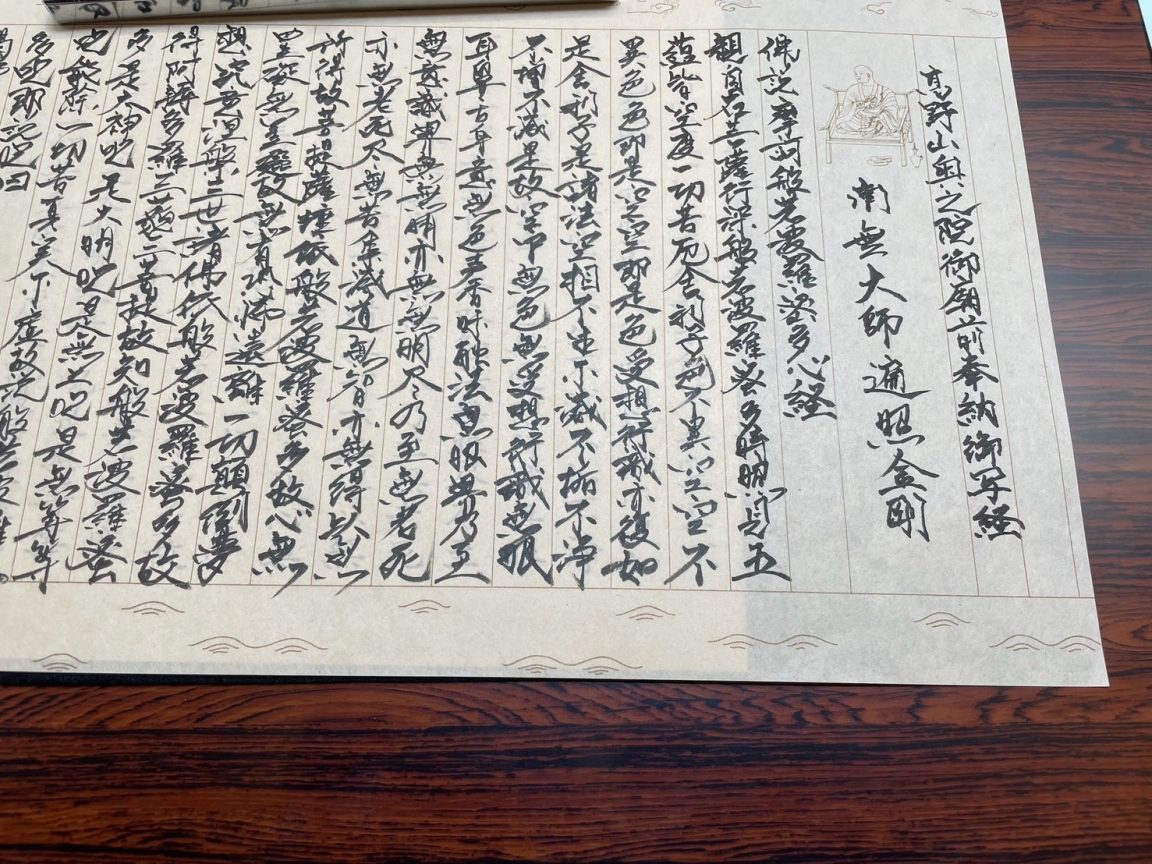 高野山奥之院御廟前奉納御写経
南無大師遍照金剛
佛説摩訶般若波羅蜜多心経
観自在菩薩行深般若波羅蜜多時照見五
蘊皆空度一切苦厄舎利子色不異空空不
異色色即是空空即是色受想行識亦復如
是舎利子是諸法空相不生不滅不垢不浄
不増不減是故空中無色無受想行識無眼
耳鼻舌身意無色声香味触法無眼界乃至
無意識界無無明亦無無明尽乃至無老死
亦無老死尽無苦集滅道無智亦無得以無
所得故菩提薩埵依般若波羅蜜多故心無
罣礙無罣礙故無有恐怖遠離一切顛倒夢
想究竟涅槃三世諸佛依般若波羅蜜多故
得阿耨多羅三藐三菩提故知般若波羅蜜
多是大神呪是大明呪是無上呪是無等等
呪能除一切苦真実不虚故説般若波羅
多呪即説呪曰